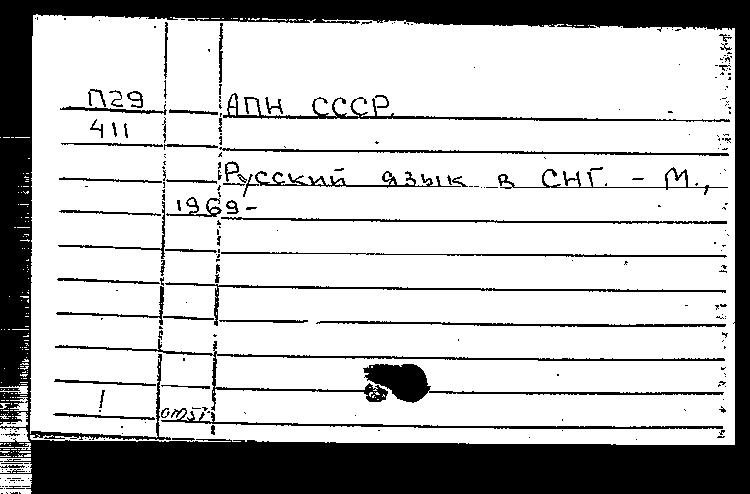 П29 АПН СССР.
411
Русский язык в СНГ. - М.,
1969-